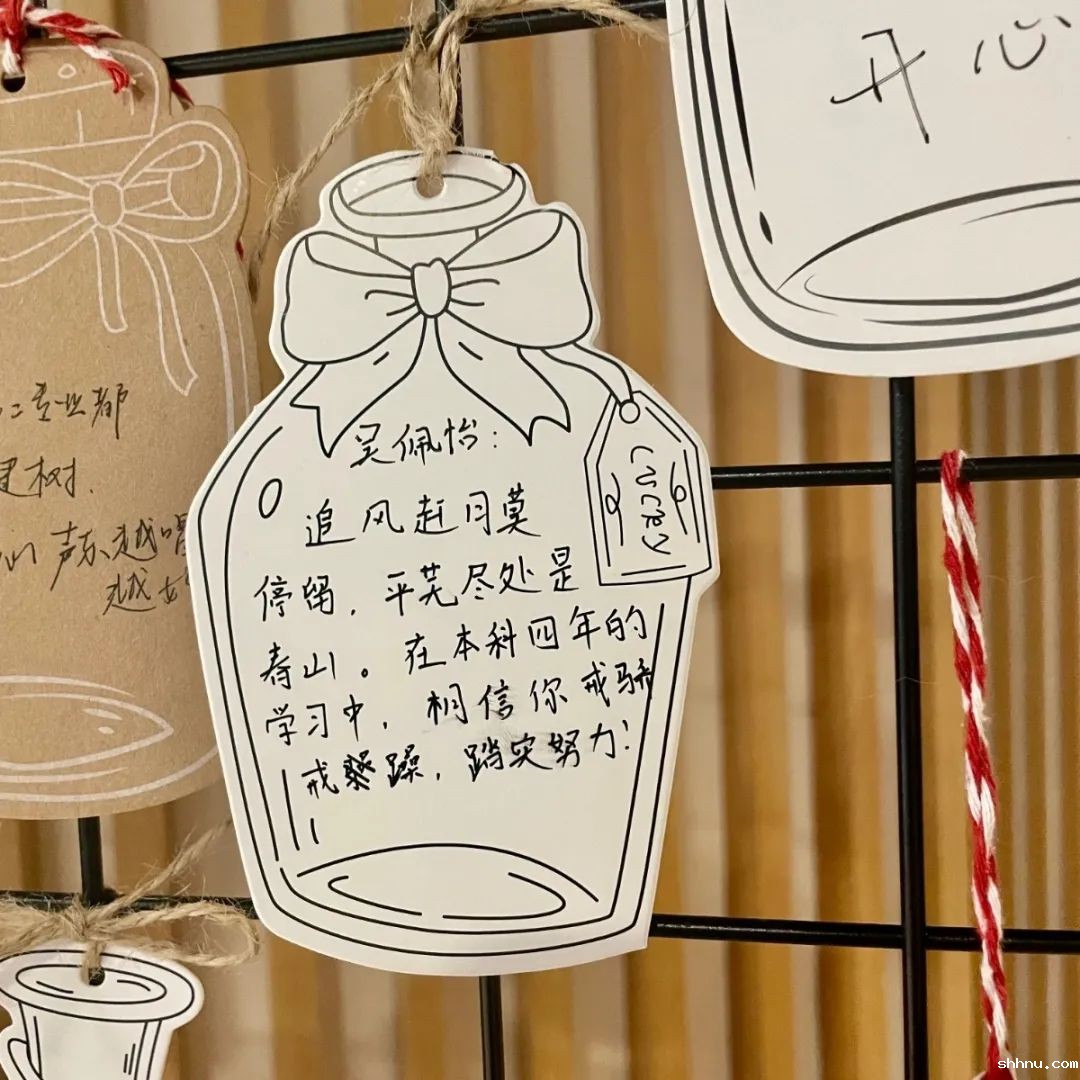 开心
吴佩怡:
追风赶月莫
停留,平芜尽处是
春山。在本科四年的
学习中,相信你戒骄
戒躁,踏实努力!
LUCKY
专业都
建树.
们声乐越唱
越好
shhnu.com